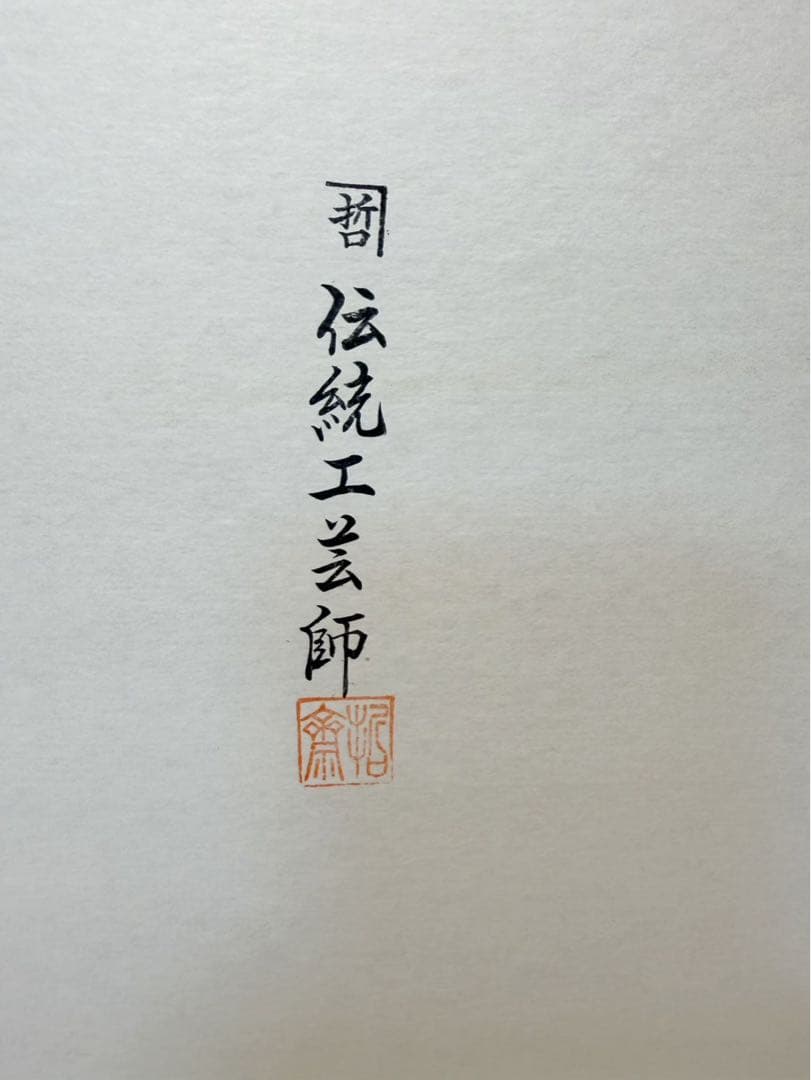 哲
伝統工芸師
哲齋